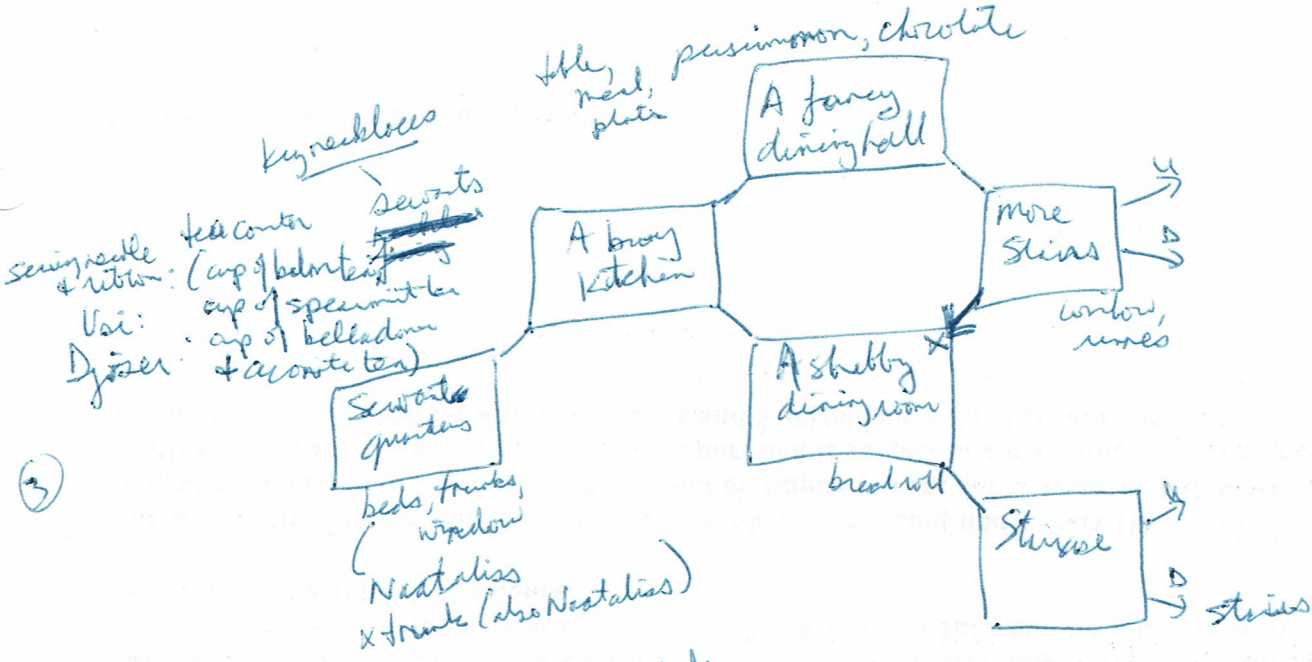 table, persimmon, chocolate
meal,
plate
A fancy
dining hall
key necklaces
servants
sewing needle
& ribbon:
teacounter
(cup of
cup of spearmint tea
Usi:
Djoser:
cup of belladonna
& aconite tea)
A busy
kitchen
more
stairs
U
D
window,
A shabby
dining room
X
bread roll
servants
quarters
beds, trunks,
window
(
Nastaliss
x trunk (also Nastaliss)
)
Staircase
U
D
stairs
3